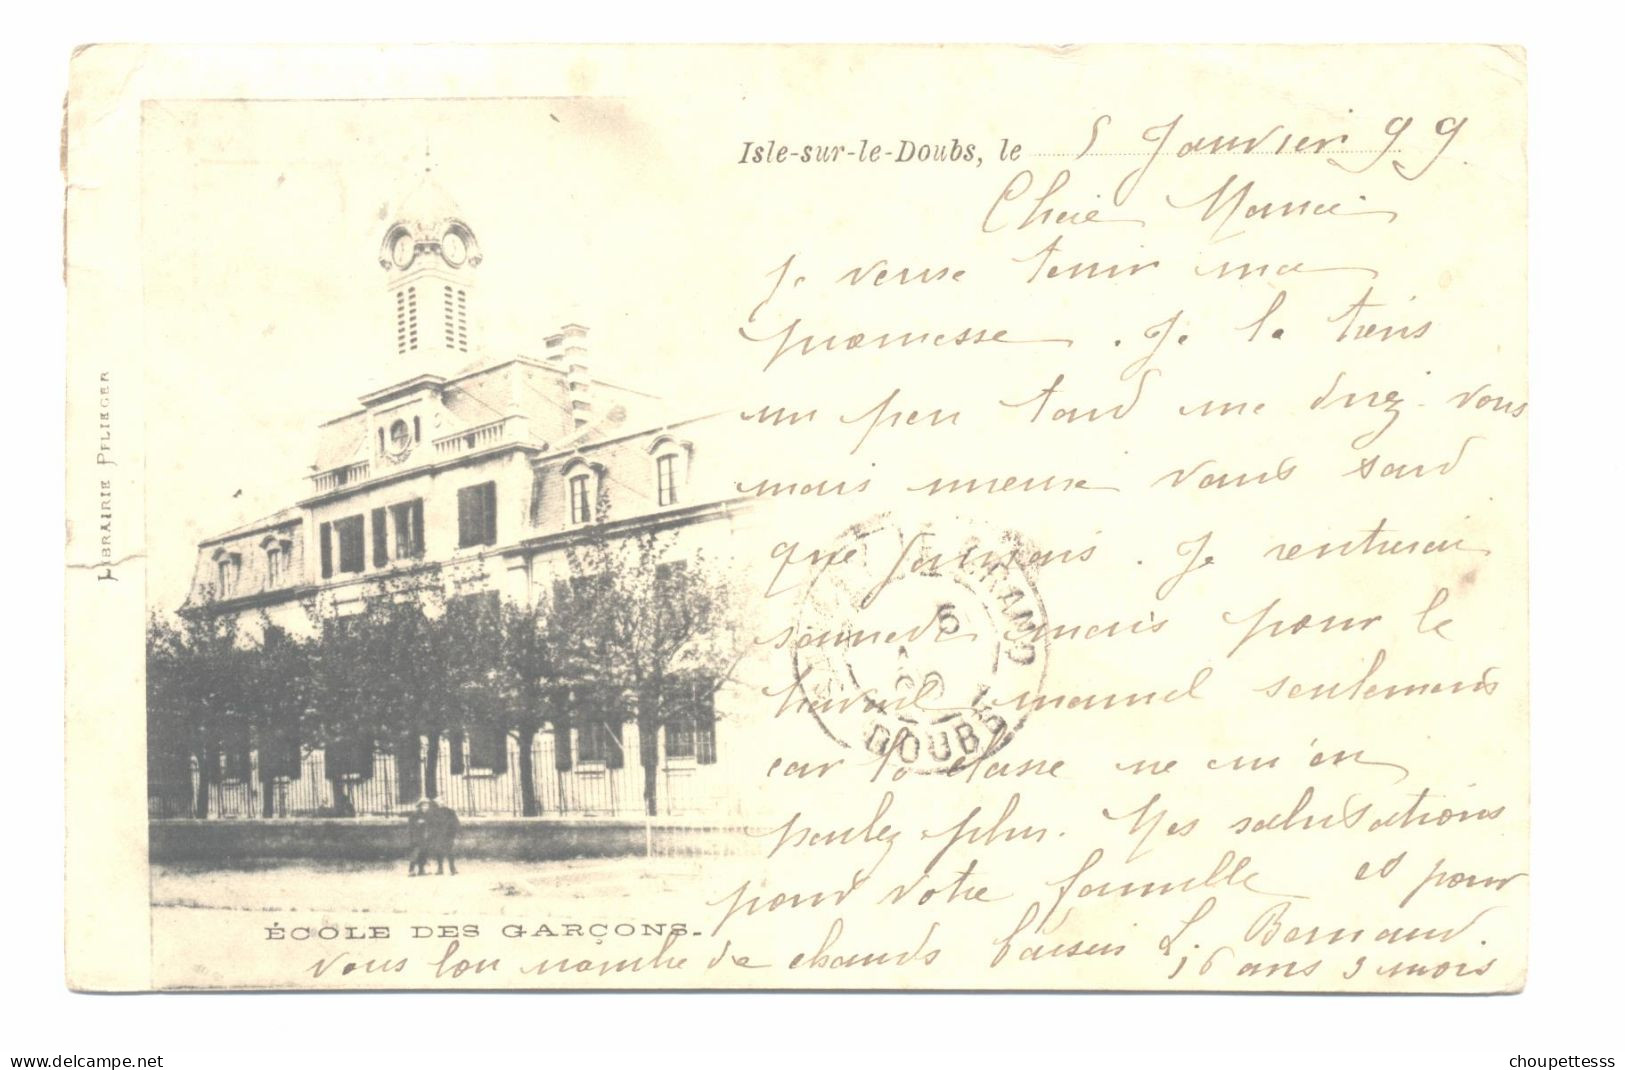 Isle-sur-le-Doubs, le 5 Janvier 99
Chère Marie
Je viens tenir ma
promesse. Je la tiens
un peu tard me direz-vous
mais mieux vaux tard
que jamais. Je rentrerai
samedi mais pour le
travail manuel seulement
car la classe ne m'en
parlez plus. Mes salutations
pour votre famille et pour
vous bon nombre de chauds baisers L. Bernard.
16 ans 3 mois
LIBRAIRIE PFLIEGER
ÉCOLE DES GARÇONS.
6
99
DOUBS
www.delcampe.net
choupettesss